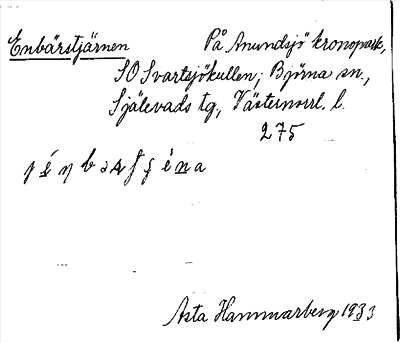 Enbärstjärnen På Anundsjö kronopark,
SO Svartsjökullen; Björna sn.,
Själevads tg., Västernorrl. l.
275
Asta Hammarberg 1933